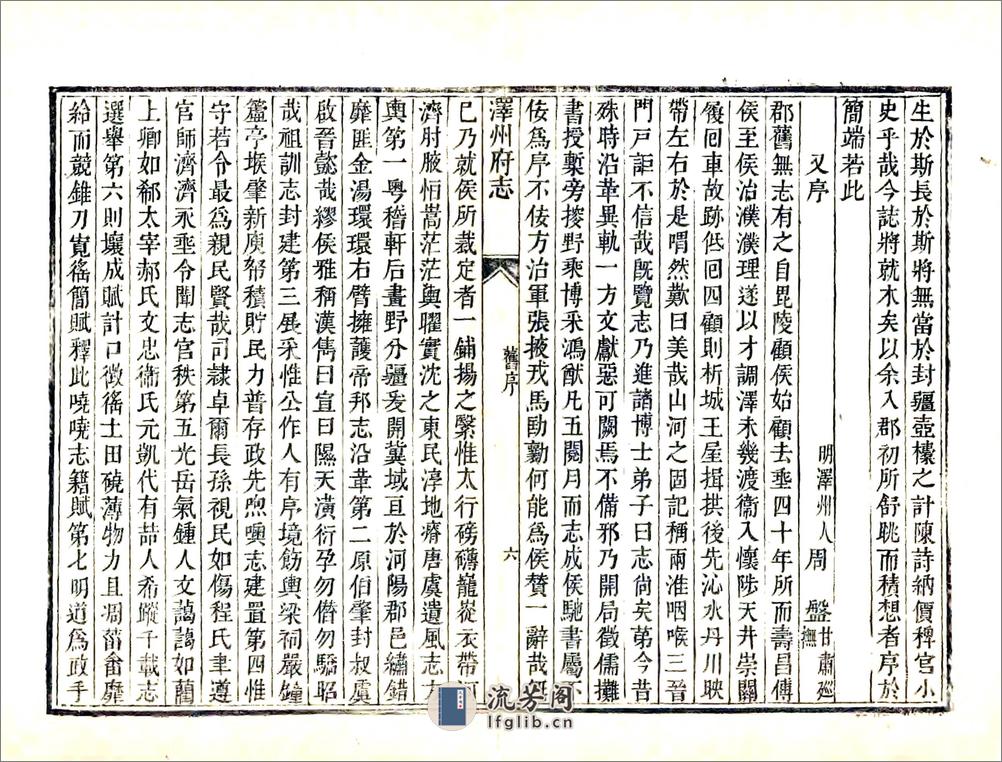 生於斯長於斯將無當於封疆壺榼之計陳詩納價稗官小
史乎哉今誌將就木矣以余入郡初所舒眺而積想者序於
簡端若此
又序
明澤州人周盤甘肅巡撫
郡舊無志有之自毘陵顧侯始顧去垂四十年所而壽昌傅
侯至侯治濮濮理遂以才調澤未幾渡衞入懷陟天井崇關
復回車故跡低回四顧則析城王屋揖拱後先沁水丹川映
帶左右於是喟然歎曰美哉山河之固記稱兩淮咽喉三晉
門戶詎不信哉既覽志乃進諸博士弟子曰志尚矣第今昔
殊時沿革異軌一方文獻惡可闕焉不備邪乃開局徵儒攤
書授槧旁搜野乘博采鴻猷凡五閱月而志成侯馳書屬不
佞爲序不佞方治軍張掖戎馬劻勷何能爲侯贊一辭哉
澤州府志
舊序
六
已乃就侯所裁定者一鋪揚之繄惟太行磅礴巃嵸衣帶
濟肘腋恒嵩茫茫輿曜實沈之東民淳地瘠唐虞遺風志
輿第一粵稽軒后畫野分疆爰開冀域亘於河陽郡邑繡錯
靡匪金湯環環右臂擁護帝邦志沿革第二原伯肇封叔虞
啟晉懿哉繆侯雅稱漢雋曰宣曰隰天潢衍孕勿僭勿驕昭
哉祖訓志封建第三展采惟公作人有序境飭輿梁祠嚴鐘
簴亭堠肇新庾帑積貯民力普存政先煦噢志建置第四惟
守若令最爲親民賢哉司隷卓爾長孫視民如傷程氏聿遵
官師濟濟永垂令聞志官秩第五光岳氣鍾人文藹藹如藺
上卿如郗太宰郝氏文忠衞氏元凱代有喆人希蹤千載志
選舉第六則壤成賦計口徵徭土田磽薄物力且凋菑畬靡
給而競錐刀寬徭簡賦釋此嘵嘵志籍賦第七明道爲政手
流芳阁
lfglib.cn